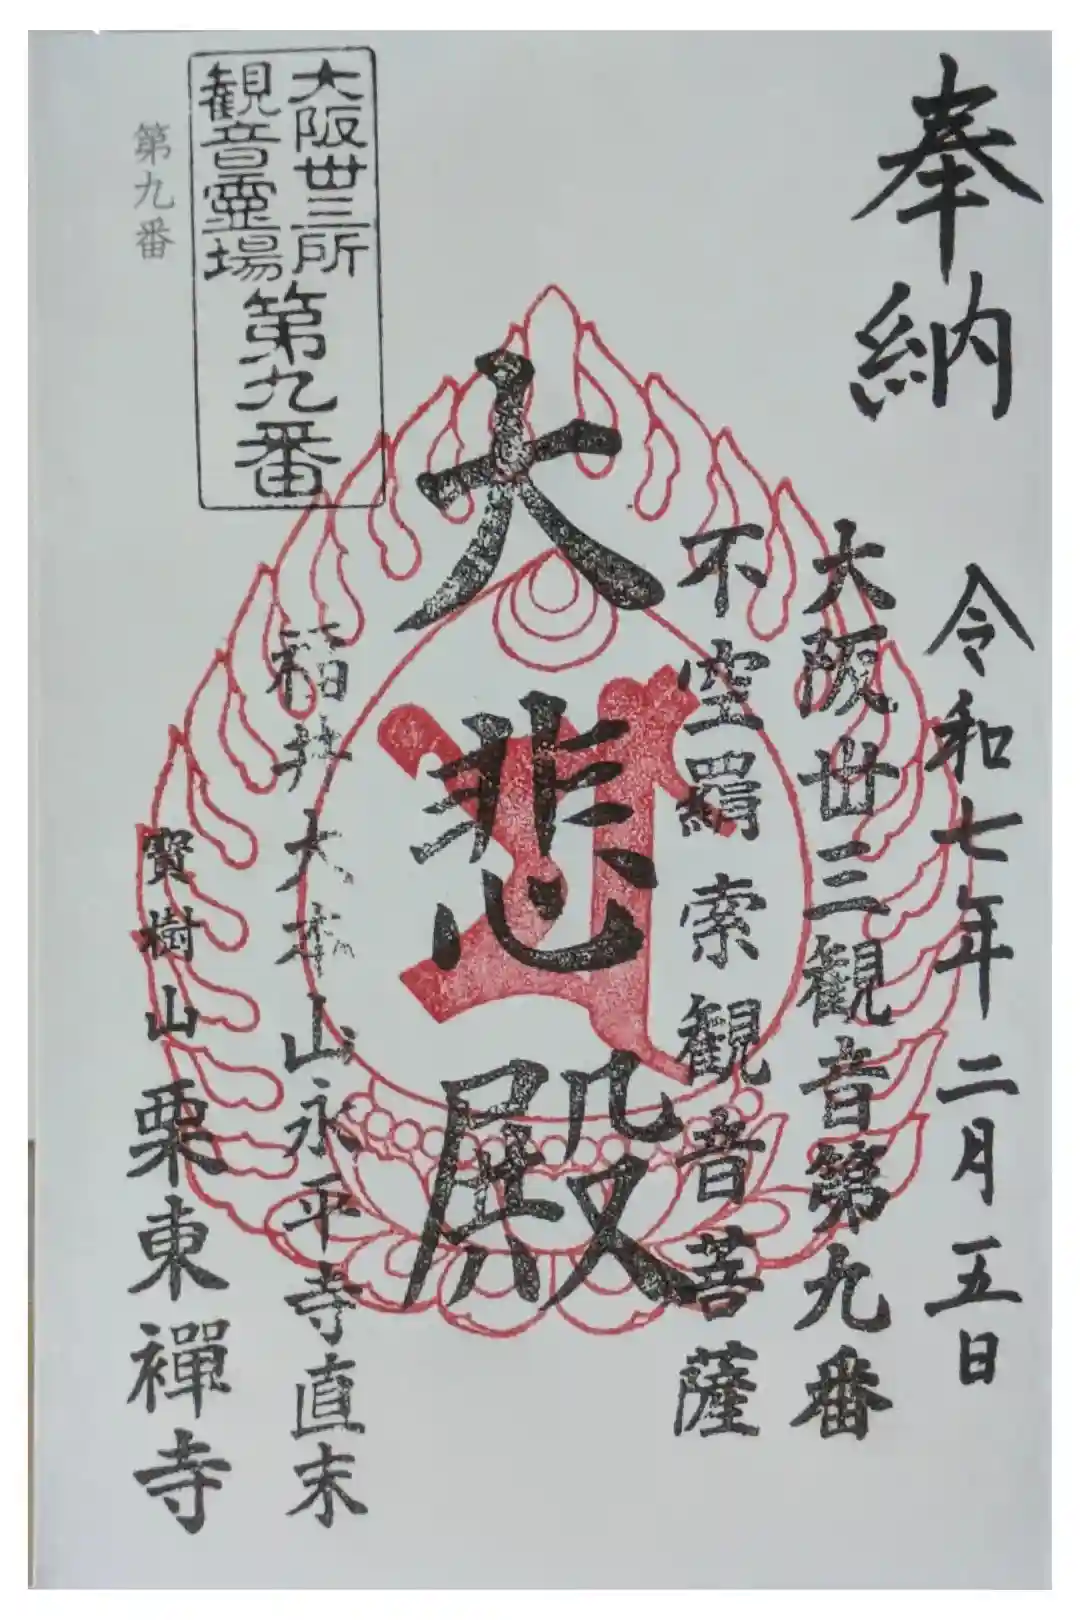 奉納
令和七年二月五日
大阪丗三観音第九番
不空羂索観音菩薩
大悲殿
大阪丗三所
観音霊場
第九番
大本山永平寺直末
賢樹山
栗東禅寺
第九番